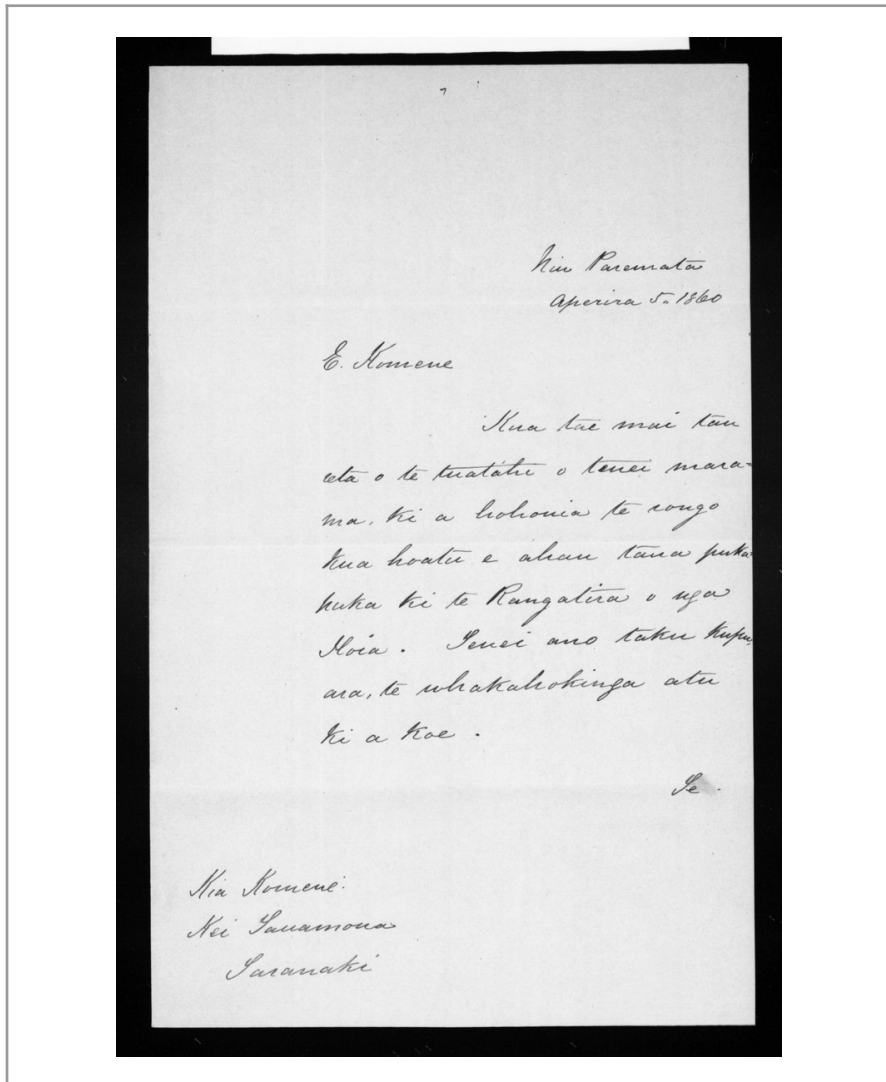 Niu Paremata
Aperira 5. 1860
E. Komene
Kua tae mai tau
reta o te tuatahi o tenei mara-
ma, ki a hohonia te rongo
Kua hoatu e ahau taua puka-
puka ki te Rangatira o nga
Hoia. Tenei ano taku Kupu,
ara, te whakahokinga atu
ki a Koe.
Te.
Kia Komene.
Kei Tauamoua
Taranaki